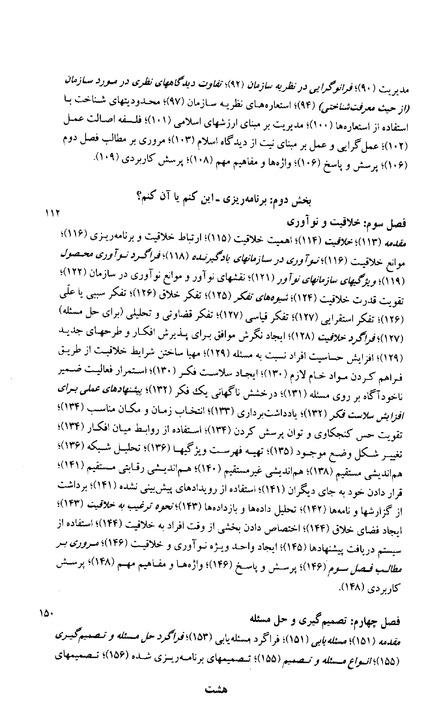 مدیریت (۹۰)؛ فرانوگرایی در نظریه سازمان (۹۲)؛ تفاوت دیدگاههای نظری در مورد سازمان
(از حیث معرفت‌شناختی) (۹۴)؛ استعاره‌های نظریه سازمان (۹۷)؛ محدودیتهای شناخت با
استفاده از استعاره‌ها (۱۰۰)؛ مدیریت بر مبنای ارزشهای اسلامی (۱۰۱)؛ فلسفه اصالت عمل
(۱۰۲)؛ عمل‌گرایی و عمل بر مبنای نیت از دیدگاه اسلام (۱۰۳)؛ مروری بر مطالب فصل دوم
(۱۰۶)؛ پرسش و پاسخ (۱۰۶)؛ واژه‌ها و مفاهیم مهم (۱۰۸)؛ پرسش کاربردی (۱۰۹).
بخش دوم: برنامه‌ریزی - این کنم یا آن کنم؟
فصل سوم: خلاقیت و نوآوری ۱۱۲
مقدمه (۱۱۳)؛ خلاقیت (۱۱۴)؛ اهمیت خلاقیت (۱۱۵)؛ ارتباط خلاقیت و برنامه‌ریزی (۱۱۶)؛
موانع خلاقیت (۱۱۶)؛ نوآوری در سازمانهای یادگیرنده (۱۱۸)؛ فراگرد نوآوری محصول
(۱۱۹)؛ ویژگیهای سازمانهای نوآور (۱۲۱)؛ نقشهای نوآور و موانع نوآوری در سازمان (۱۲۲)؛
تقویت قدرت خلاقیت (۱۲۴)؛ شیوه‌های تفکر (۱۲۵)؛ تفکر خلاق (۱۲۶)؛ تفکر سببی یا علّی
(۱۲۶)؛ تفکر استقرایی (۱۲۷)؛ تفکر قیاسی (۱۲۷)؛ تفکر قضاوتی و تحلیلی (برای حل مسئله)
(۱۲۷)؛ فراگرد خلاقیت (۱۲۸)؛ ایجاد نگرش موافق برای پذیرش افکار و طرحهای جدید
(۱۲۹)؛ افزایش حساسیت افراد نسبت به مسئله (۱۲۹)؛ مهیا ساختن شرایط خلاقیت از طریق
فراهم کردن مواد خام لازم (۱۳۰)؛ ایجاد سلاست فکر (۱۳۰)؛ استمرار فعالیت ضمیر
ناخودآگاه بر روی مسئله (۱۳۱)؛ درخشش ناگهانی یک فکر (۱۳۲)؛ پیشنهادهای عملی برای
افزایش سلاست فکر (۱۳۲)؛ یادداشت‌برداری (۱۳۳)؛ انتخاب زمان و مکان مناسب (۱۳۴)؛
تقویت حس کنجکاوی و توان پرسش کردن (۱۳۴)؛ استفاده از روابط میان افکار (۱۳۴)؛
تغییر شکل وضع موجود (۱۳۵)؛ تهیه فهرست ویژگیها (۱۳۶)؛ تحلیل شبکه (۱۳۶)؛
هم‌اندیشی مستقیم (۱۳۸)؛ هم‌اندیشی غیرمستقیم (۱۴۰)؛ هم‌اندیشی رقابتی مستقیم (۱۴۱)؛
قرار دادن خود به جای دیگران (۱۴۱)؛ استفاده از رویدادهای پیش‌بینی نشده (۱۴۱)؛ برداشت
از گزارشها و نامه‌ها (۱۴۲)؛ تحلیل داده‌ها و بازداده‌ها (۱۴۳)؛ نحوه ترغیب به خلاقیت (۱۴۳)؛
ایجاد فضای خلاق (۱۴۴)؛ اختصاص دادن بخشی از وقت افراد به خلاقیت (۱۴۴)؛ استفاده از
سیستم دریافت پیشنهادها (۱۴۵)؛ ایجاد واحد ویژه نوآوری و خلاقیت (۱۴۶)؛ مروری بر
مطالب فصل سوم (۱۴۶)؛ پرسش و پاسخ (۱۴۶)؛ واژه‌ها و مفاهیم مهم (۱۴۸)؛ پرسش
کاربردی (۱۴۸).
فصل چهارم: تصمیم‌گیری و حل مسئله ۱۵۰
مقدمه (۱۵۱)؛ مسئله‌یابی (۱۵۱)؛ فراگرد مسئله‌یابی (۱۵۳)؛ فراگرد حل مسئله و تصمیم‌گیری
(۱۵۵)؛ انواع مسئله و تصمیم (۱۵۵)؛ تصمیمهای برنامه‌ریزی شده (۱۵۶)؛ تصمیمهای
هشت